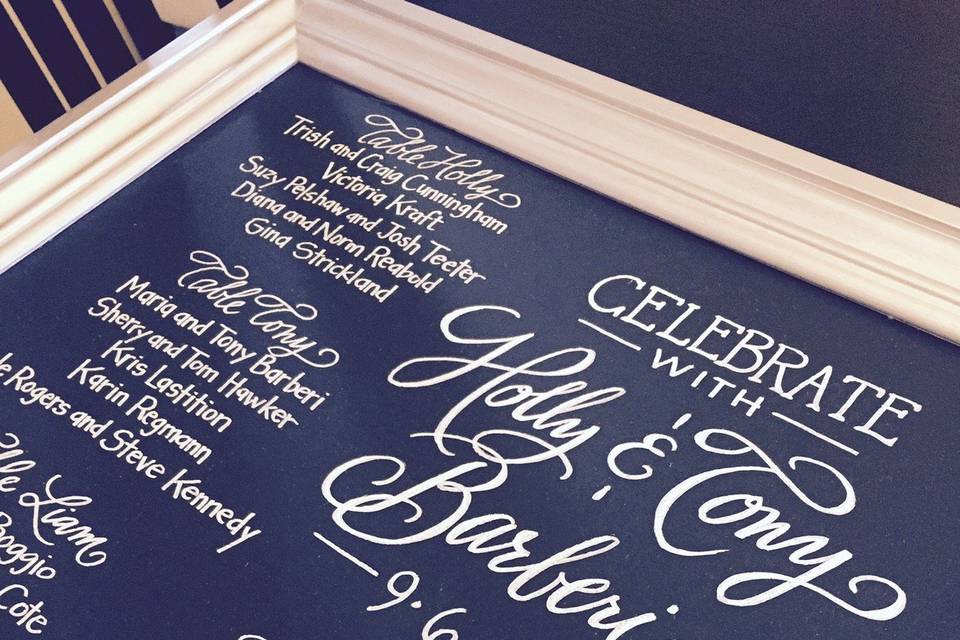 Table Holly
Trish and Craig Cunningham
Victoria Kraft
Suzy Pelshaw and Josh Teeter
Diana and Norm Reabold
Gina Strickland
Table Tony
Maria and Tony Barberi
Sherry and Tom Hawker
Kris Lastition
Karin Regmann
Rogers and Steve Kennedy
Liam
Cote
CELEBRATE
WITH
Holly & Tony
Barberi
9.6